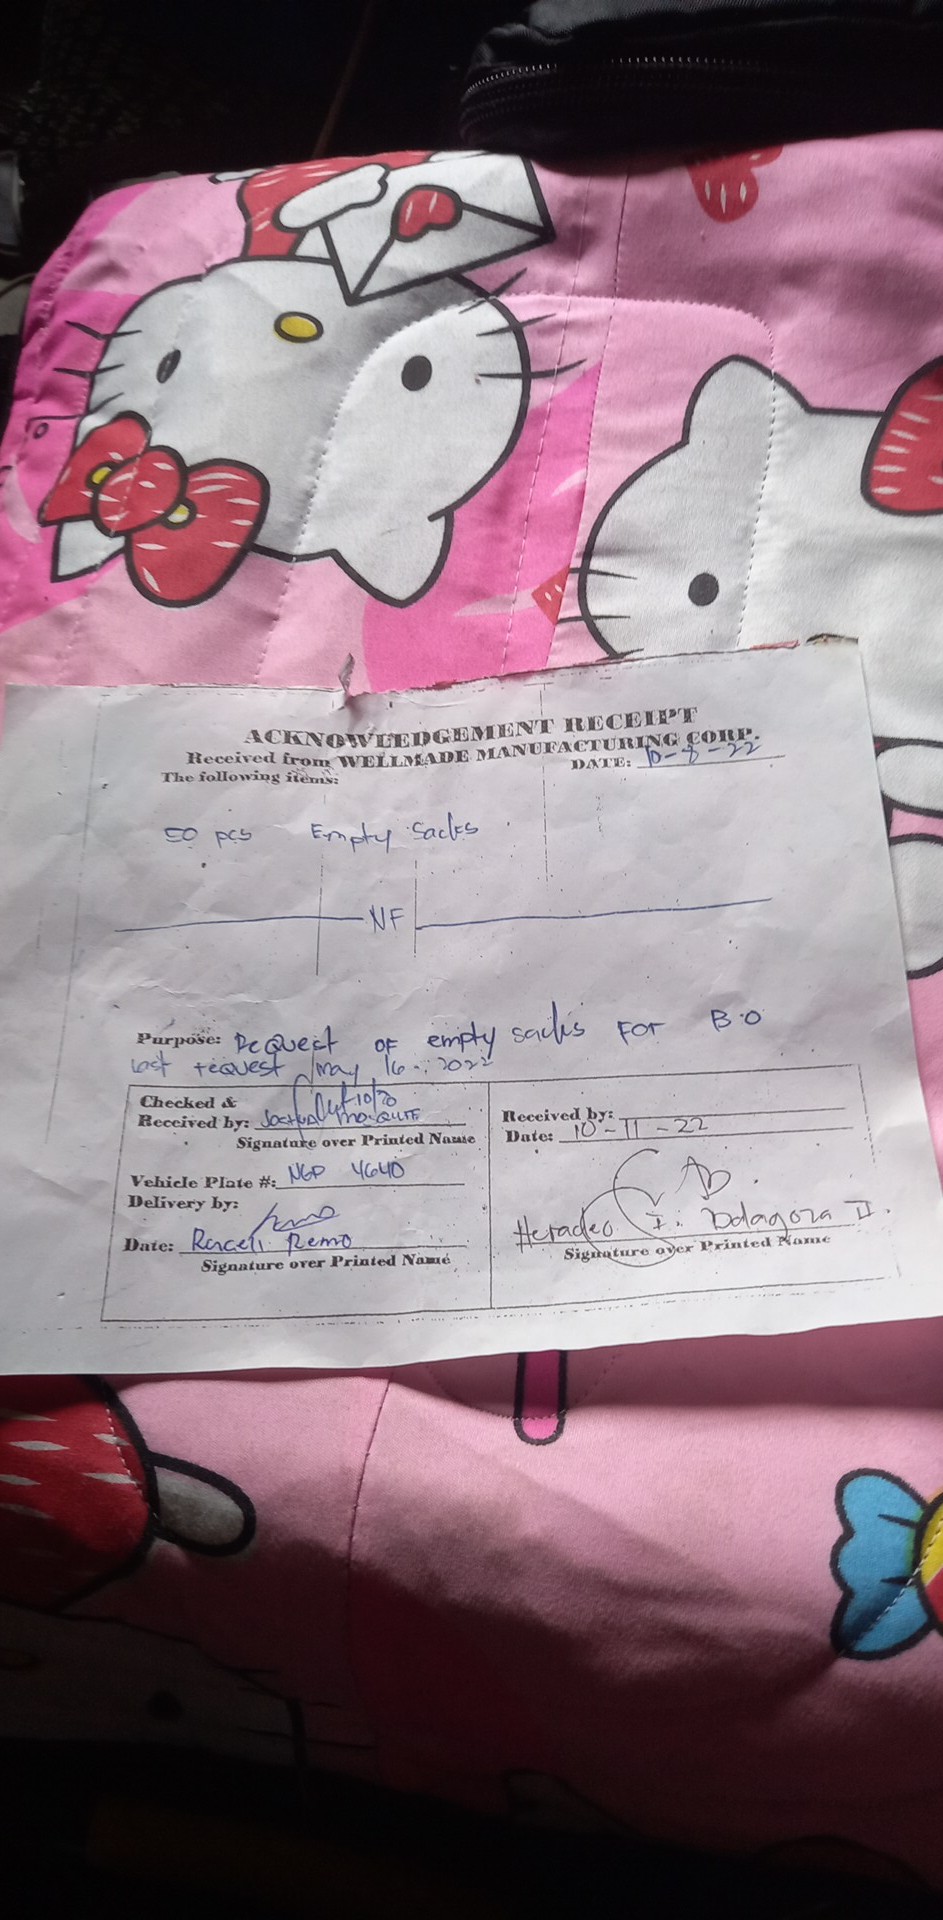 ACKNOWLEDGEMENT RECEIPT
Received from WELLMADE MANUFACTURING CORP.
The following items:
DATE: 10-8-22
50 pcs Empty Sacks
NF
Purpose: Request of empty sacks For B.O
last request May 16, 2022
Checked &
Received by:
Signature over Printed Name
Vehicle Plate #: NGP 4640
Delivery by:
Date: Raceli Remo
Signature over Printed Name
Received by:
Date: 10-11-22
I. Dolagoza II.
Signature over Printed Name